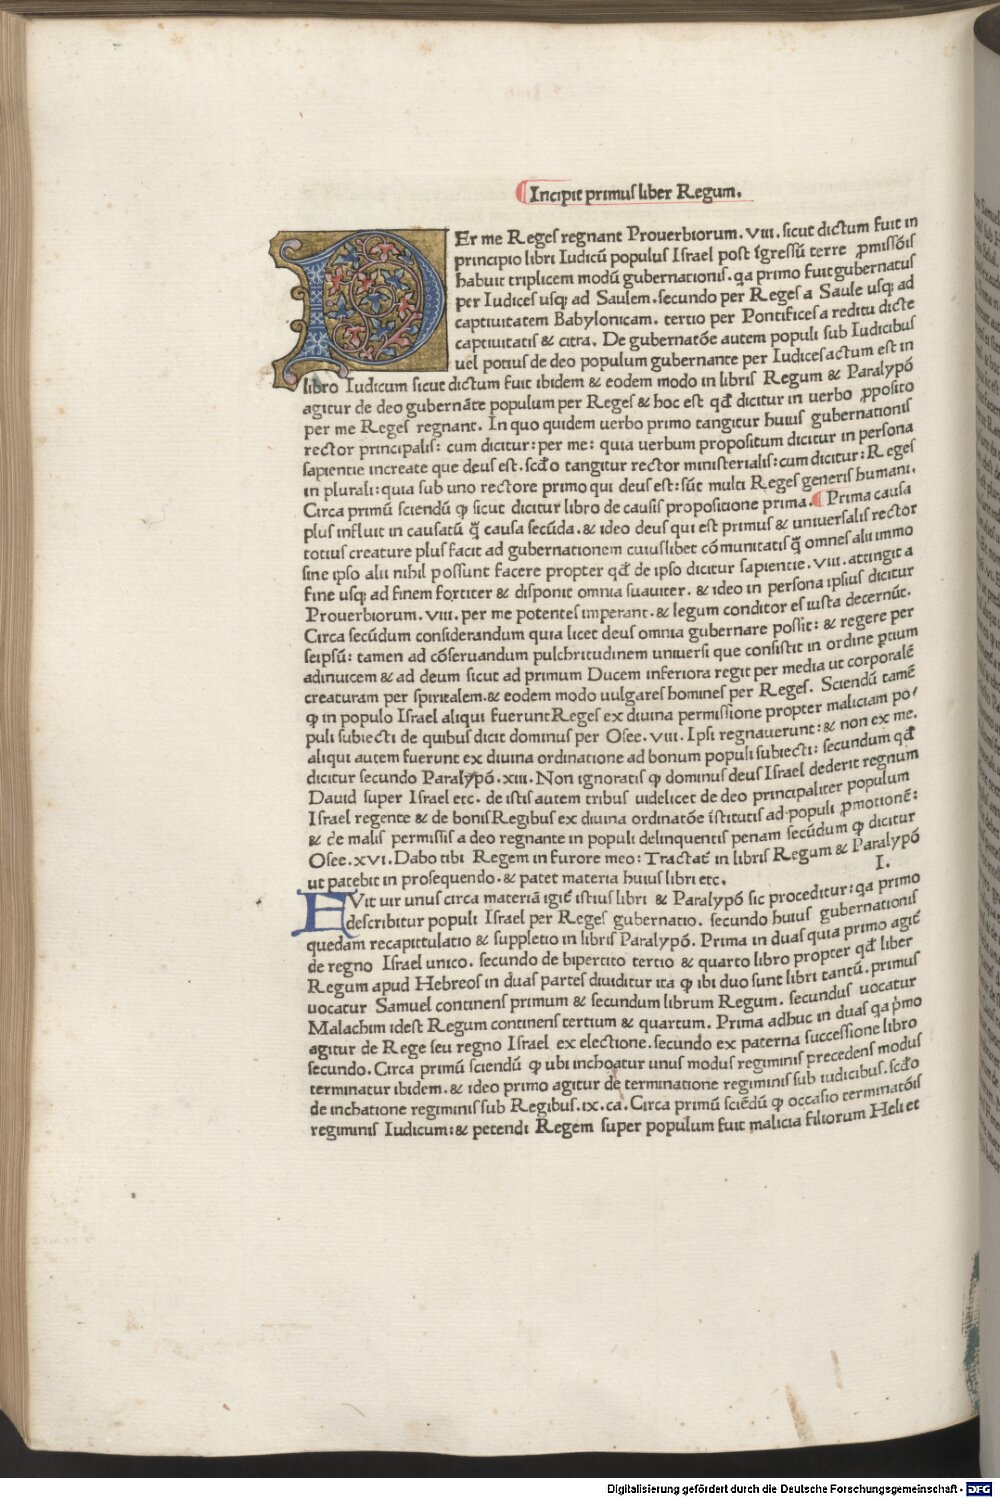 Incipit primus liber Regum.
PEr me Reges regnant Prouerbiorum. VIII. sicut dictum fuit in
principio libri Iudicū populus Israel post īgressū terre ꝓmissōis
habuit triplicem modū gubernationis. qa primo fuit gubernatus
per Iudices usqꝫ ad Saulem. secundo per Reges a Saule usqꝫ ad
captiuitatem Babylonicam. tertio per Pontifices a reditu dicte
captiuitatis & citra. De gubernatōe autem populi sub Iudicibus
uel potius de deo populum gubernante per Iudices actum est in
libro Iudicum sicut dictum fuit ibidem & eodem modo in libris Regum & Paralypō
agitur de deo gubernāte populum per Reges & hoc est qđ dicitur in uerbo ꝓposito
per me Reges regnant. In quo quidem uerbo primo tangitur huius gubernationis
rector principalis: cum dicitur: per me: quia uerbum propositum dicitur in persona
sapientie increate que deus est. scđo tangitur rector ministerialis: cum dicitur: Reges
in plurali: quia sub uno rectore primo qui deus est: sūt multi Reges generis humani.
Circa primū sciendū ꝙ sicut dicitur libro de causis propositione prima. Prima causa
plus influit in causatū q̄ causa secūda. & ideo deus qui est primus & uniuersalis rector
totius creature plus facit ad gubernationem cuiuslibet cōmunitatis q̄ omnes alii immo
sine ipso alii nihil possunt facere propter qđ de ipso dicitur sapientie. VIII. attingit a
fine usqꝫ ad finem fortiter & disponit omnia suauiter. & ideo in persona ipsius dicitur
Prouerbiorum. VIII. per me potentes imperant. & legum conditores iusta decernūt.
Circa secūdum considerandum quia licet deus omnia gubernare possit: & regere per
seipsū: tamen ad cōseruandum pulchritudinem uniuersi que consistit in ordine ptium
adinuicem & ad deum sicut ad primum Ducem inferiora regit per media ut corporalē
creaturam per spiritalem. & eodem modo uulgares homines per Reges. Sciendū tamē
ꝙ in populo Israel aliqui fuerunt Reges ex diuina permissione propter maliciam po/
puli subiecti de quibus dicit dominus per Osee. VIII. Ipsi regnauerunt: & non ex me.
aliqui autem fuerunt ex diuina ordinatione ad bonum populi subiecti: secundum qđ
dicitur secundo Paralypō. XIII. Non ignoratis ꝙ dominus deus Israel dederit regnum
Dauid super Israel etc. de istis autem tribus uidelicet de deo principaliter populum
Israel regente & de bonis Regibus ex diuina ordinatōe īstitutis ad populi ꝓmotionē:
& de malis permissis a deo regnante in populi delinquentis penam secūdum ꝙ dicitur
Osee. XVI. Dabo tibi Regem in furore meo: Tractat̄ in libris Regum & Paralypō
ut patebit in prosequendo. & patet materia huius libri etc.
I.
FVit uir unus circa materiā igit̄ istius libri & Paralypō sic proceditur: qa primo
describitur populi Israel per Reges gubernatio. secundo huius gubernationis
quedam recapittulatio & suppletio in libris Paralypō. Prima in duas quia primo agit̄
de regno Israel unico. secundo de bipertito tertio & quarto libro propter qđ liber
Regum apud Hebreos in duas partes diuiditur ita ꝙ ibi duo sunt libri tantū. primus
uocatur Samuel continens primum & secundum librum Regum. secundus uocatur
Malachim idest Regum continens tertium & quartum. Prima adhuc in duas qa p̄mo
agitur de Rege seu regno Israel ex electione. secundo ex paterna successione libro
secundo. Circa primū sciendū ꝙ ubi inchoatur unus modus regiminis precedens modus
terminatur ibidem. & ideo primo agitur de terminatione regiminis sub iudicibus. scđo
de inchatione regiminis sub Regibus. IX. ca. Circa primū sciēdū ꝙ occasio terminatōis
regiminis Iudicum: & petendi Regem super populum fuit malicia filiorum Heli et
Digitalisierung gefördert durch die Deutsche Forschungsgemeinschaft - DFG